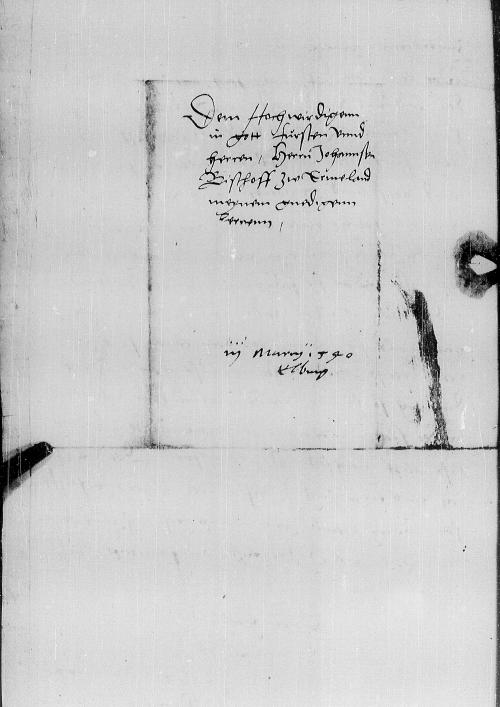 Dem Hochwirdigenn
in gott fursten vnnd
herren, Herrn Johannsen
Bischoff zw Ermeland
meynem gnedigenn
herrenn,
iij Martij 1540
Elbing